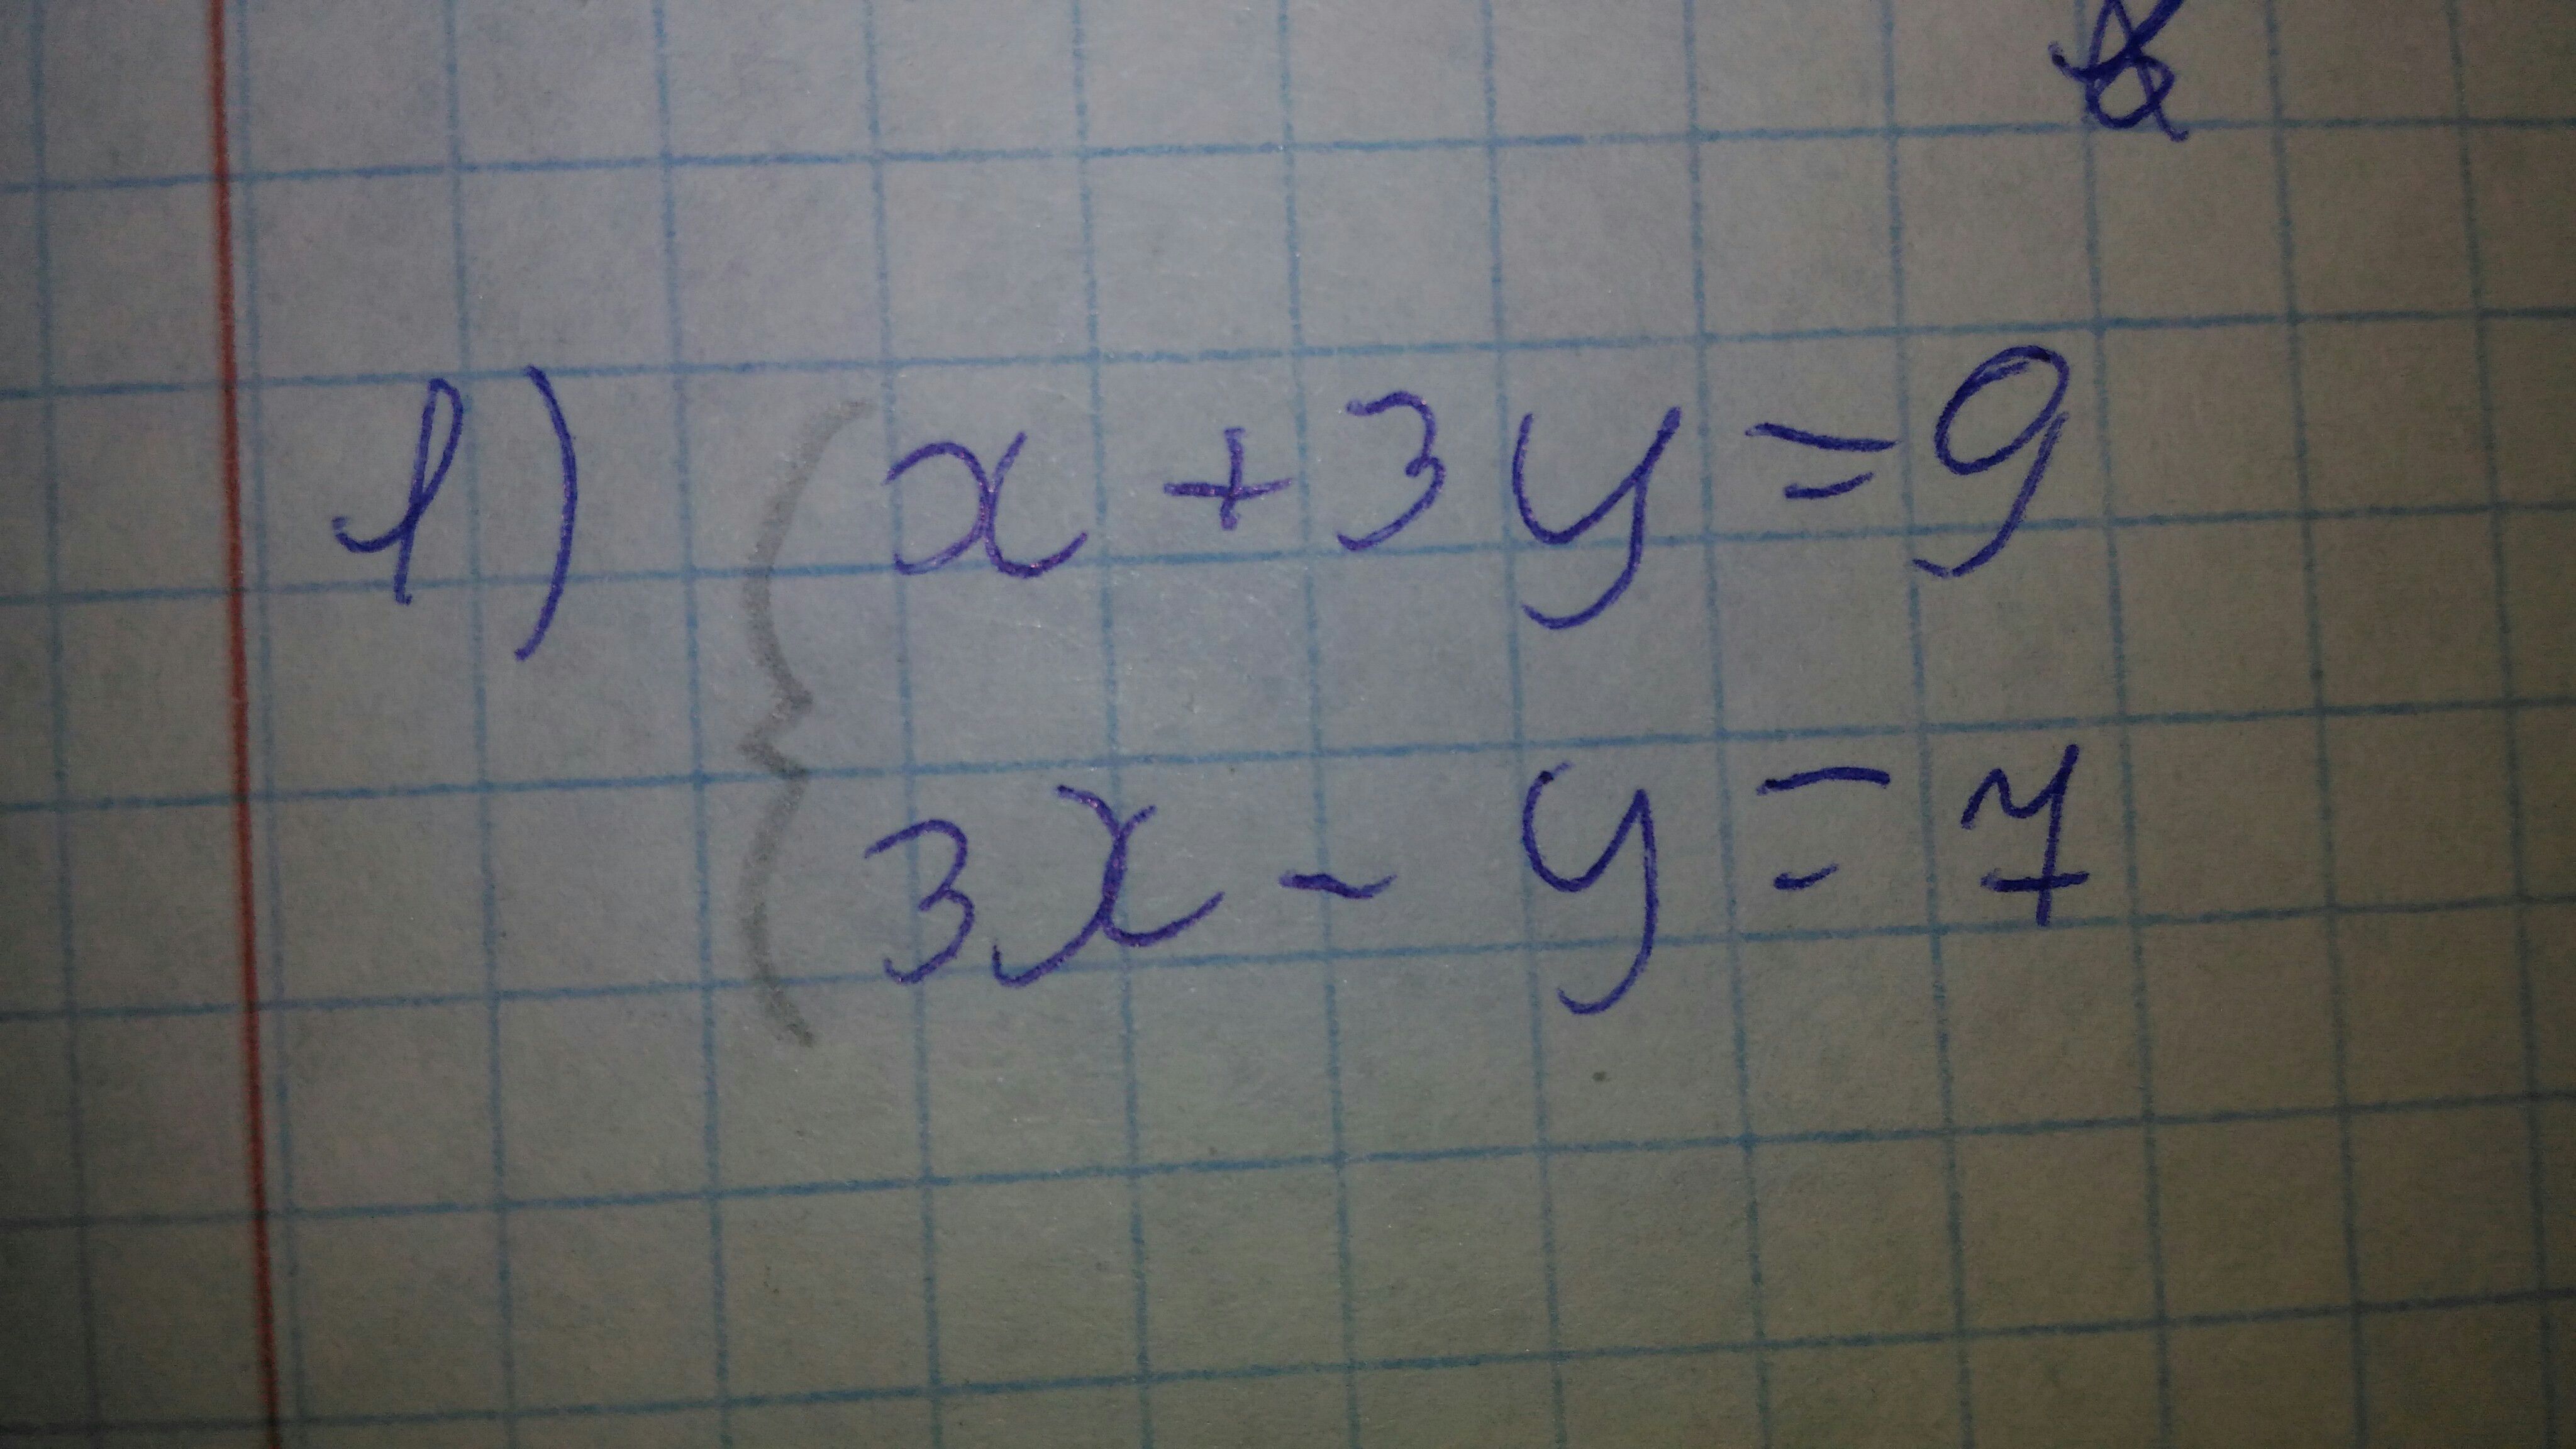 1) { x + 3y = 9
3x - y = 7